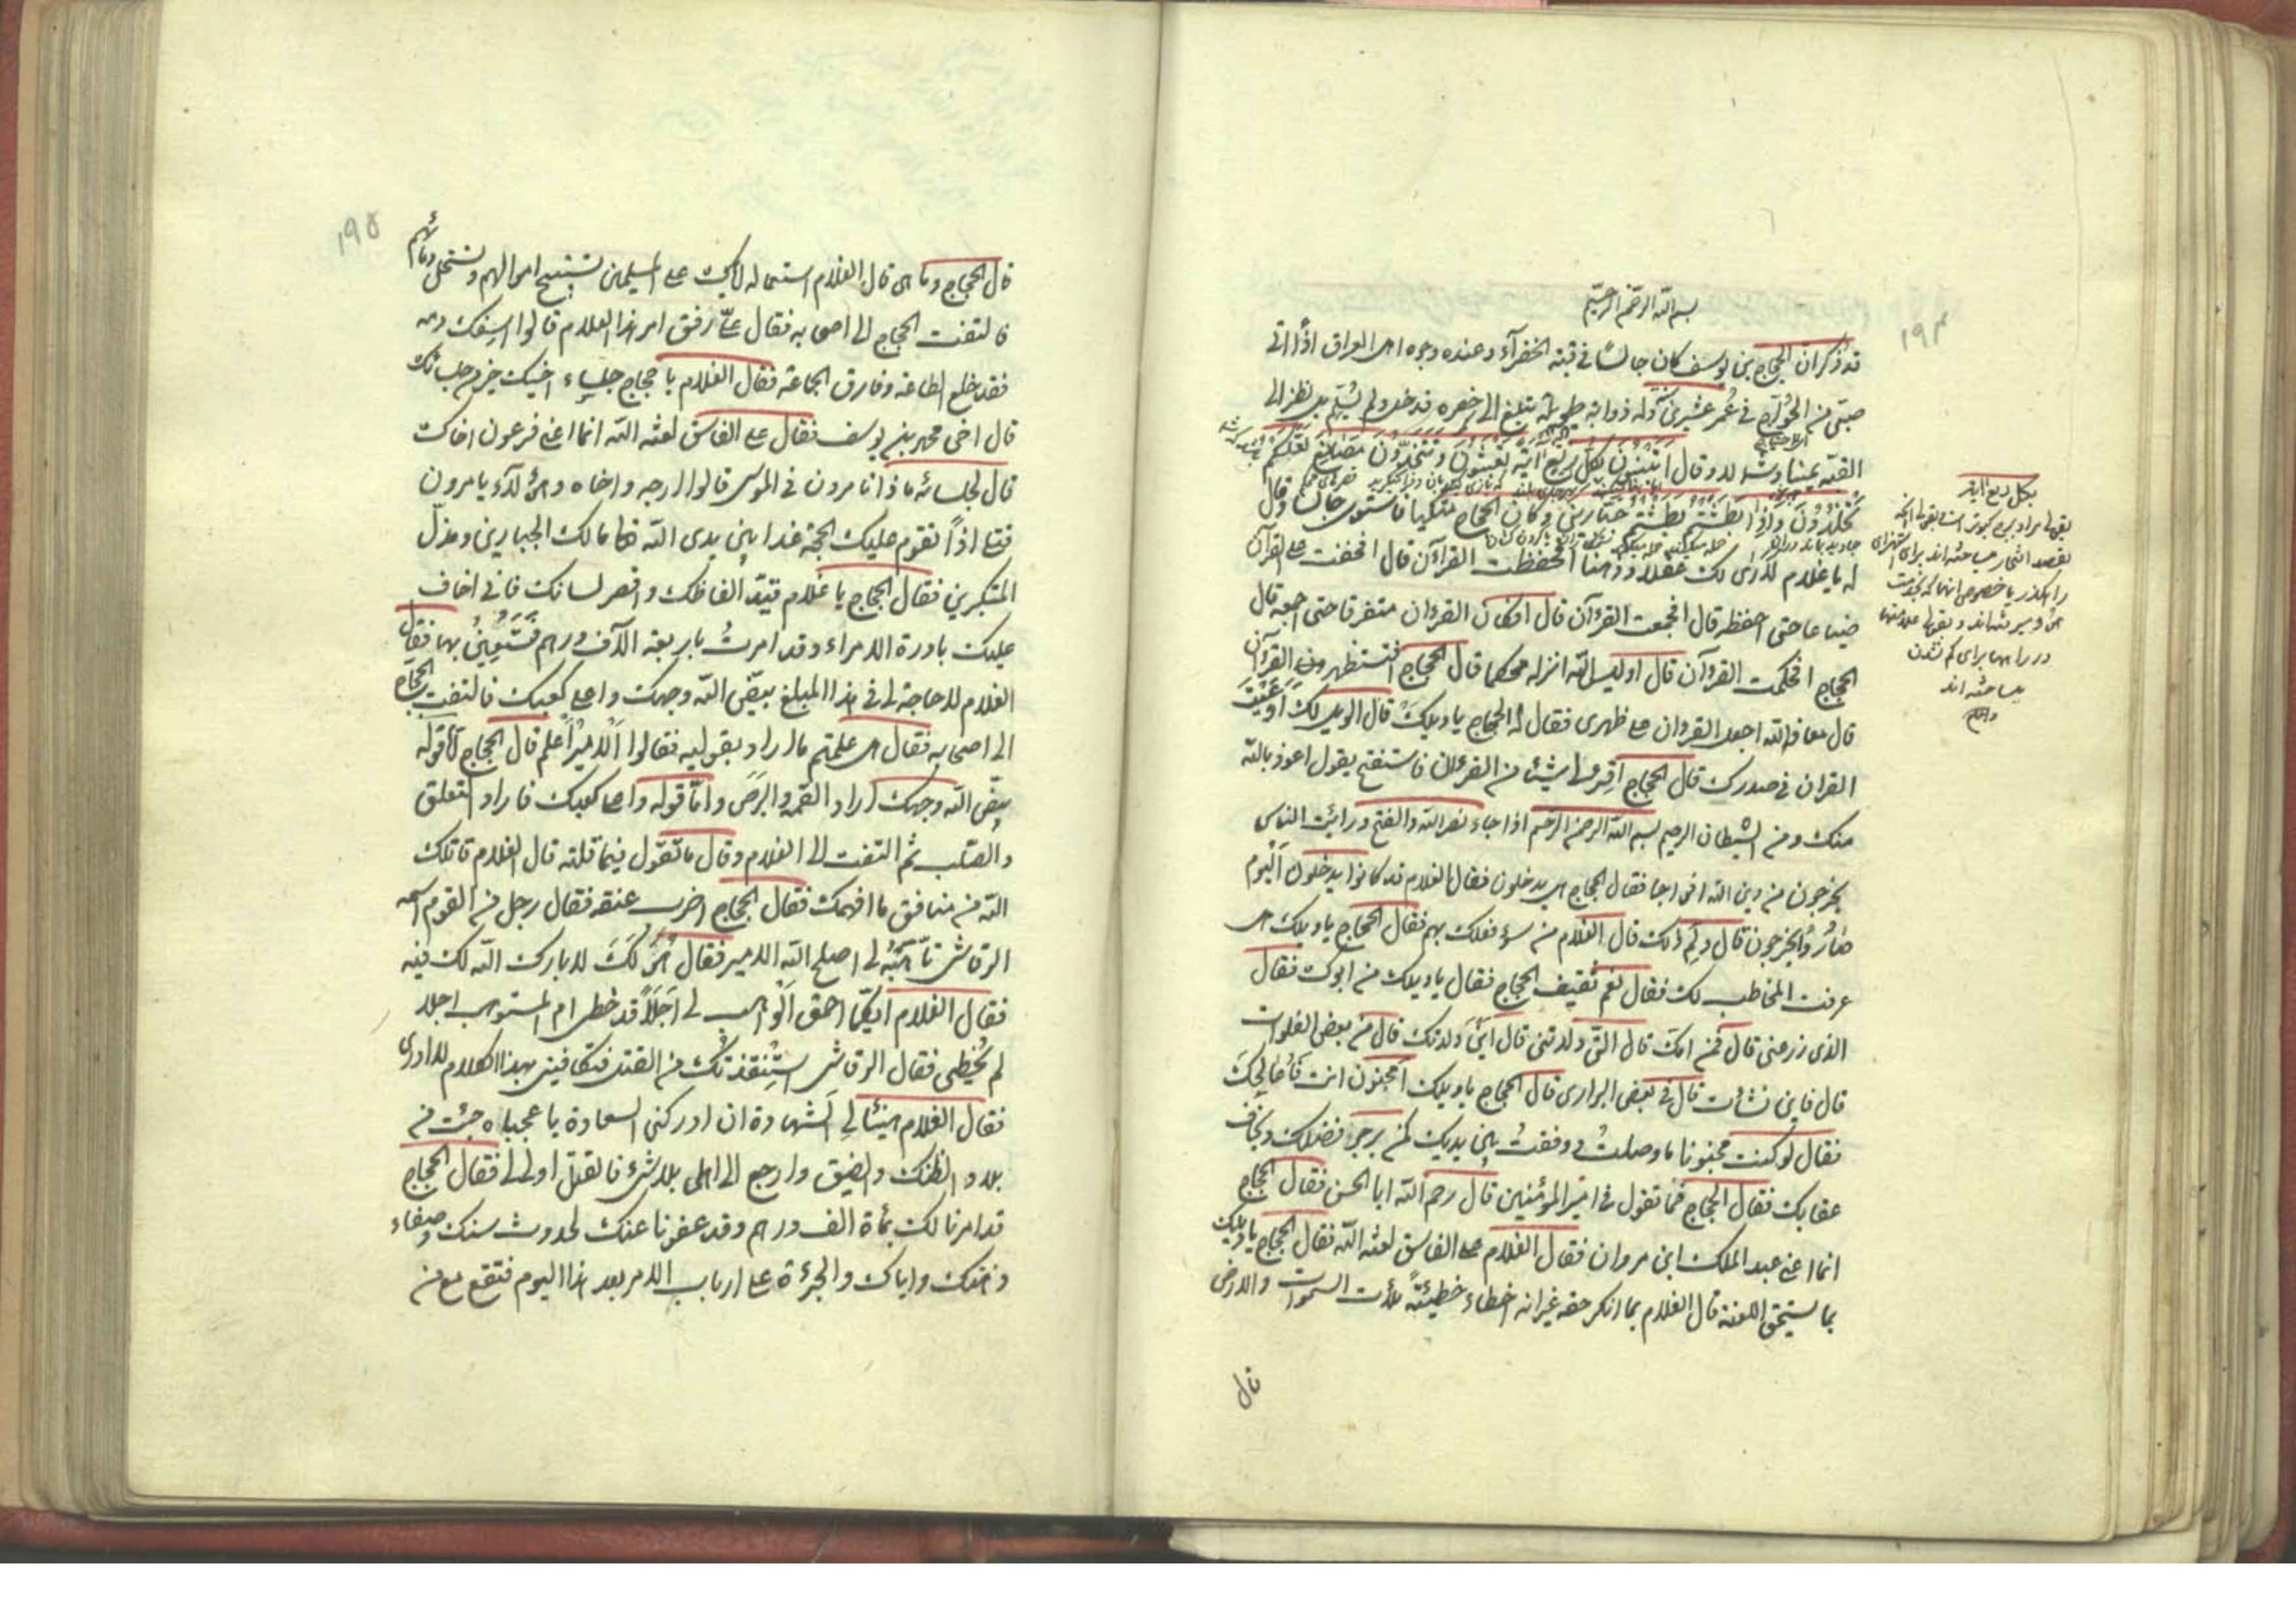 ۱۹۴
بسم الله الرحمن الرحیم
قد ذکر ان الحجاج بن یوسف کان جالسًا فی قبته الخضرآء و عنده وجوه اهل العراق اذًا اتی
صبی من الخوارج فی عُمر عشرین و له ذوابة طویلة تبلغ الی خصره فدخل و لم یُسلّم بل نظر الی
القبّة یمینًا و شمالا و قال اَتَبْنُونَ بِکُلِّ رِیعٍ آیَةً تَعْبَثُونَ وَ تَتَّخِذُونَ مَصَانِعَ لَعَلَّکُمْ
تَخْلُدُونَ وَ اِذَا بَطَشْتُمْ بَطَشْتُمْ جَبَّارِینَ و کان الحجاج متکیا فاستوی جالسا و قال
له یا غلام لاری لک عقلا و ذهنا افحفظت القرآن قال اخفت علی القرآن
ضیاعا حتی احفظه قال افجمعت القرءآن قال اوکان القرءان متفرقا حتی اجمعه قال
الحجاج افحکمت القرءآن قال اولیس الله انزله محکما قال الحجاج افتستظهر من القرآن
قال معاذ الله اجعل القرءان علی ظهری فقال له الحجاج یا ویلک قال الویل لک اَوَعَیْتَ
القران فی صدرک قال الحجاج اقرء لی شیئا من القرءان فاستفتح یقول اعوذ بالله
منک و من الشیطان الرجیم بسم الله الرحمن الرحیم اذا جاء نصر الله و الفتح و رایت الناس
یخرجون من دین الله افواجا فقال الحجاج بل یدخلون فقال الغلام قد کانوا یدخلون الیوم
صارُوا یخرجون قال و لِمَ ذلک قال الغلام من سوء فعلک بهم فقال الحجاج یا ویلک هل
عرفت المخاطب لک فقال نعم ثقیف الحجاج فقال یا ویلک من ابوک فقال
الذی زرعنی قال فمن امّک قال التی ولدتنی قال اینَ ولدتک قال فی بعض الفلوات
قال فاین نشأت قال فی بعض البراری قال الحجاج یا ویلک امجنون انت فَاُعَالِجَکَ
فقال لو کنت مجنونا ما وصلتُ و وقفتُ بین یدیک کمن یرجو فضلک و یخاف
عقابک فقال الحجاج فما تقول فی امیر المؤمنین قال رحم الله ابا الحسن فقال الحجاج
انما اعنی عبد الملک ابن مروان فقال الغلام علی الفاسق لعنة الله فقال الحجاج یا ویلک
بما یستحق اللعنة قال الغلام بما انکر حقه غیر انه اخطاء خطیئةً ملأت السموات و الارض
قال
بکل ریع آیة
۱۹۵
قال الحجاج و ما هی قال الغلام استعماله ایاک علی المسلمین تستبیح اموالهم و تستحل دمائهم
فالتفت الحجاج الی اصحابه فقال هذا الغلام قالوا اسفک دمه
فقد خلع الطاعة و فارق الجماعة فقال الغلام یا حجاج جلساء اخیک خیر من جلسائک
قال اخی محمد بن یوسف فقال علی الفاسق لعنة الله انما اعنی فرعون اذ
قال لجلسائه ماذا تامرون فی الموسی قالوا ارجه و اخاه و هؤلآء یامرون
فقتلی اذاً تقوم علیک الحجة غدا بین یدی الله مالک الجبارین و مذلّ
المتکبرین فقال الحجاج یا غلام قیّد الفاظک و اقصر لسانک فانی اخاف
علیک بادرة الامراء و قد امرتُ باربعة آلاف درهم تستعین بها فقال
الغلام لا حاجة لی فی هذا المبلغ بیّض الله وجهک و اعلی کعبک فالتفت الحجاج
الی اصحابه فقال هل علمتم ما اراد بقولیه فقالوا الامیر اعلم قال الحجاج امّا قوله
بیّض الله وجهک اراد العَمی و البرَص و امّا قوله و اعلی کعبک فاراد التعلق
و الصّلب ثم التفت الی الغلام و قال ما تقول فیما قلته قال الغلام قاتلک
الله من منافق ما افهمک فقال الحجاج اضرب عنقه فقال رجل من القوم اسمه
الرقاشی هَبْهُ لی اصلح الله الامیر فقال هُوَ لَکَ لا بارک الله لک فیه
فقال الغلام ایکما احمق الواهب لی اَجَلاً قد حضر ام المستوهب اجلا
لم یحضر فقال الرقاشی استنقذتک من القتل فتکافینی بهذا الکلام
فقال الغلام هنیئا لی الشهادة ان ادرکنی السعادة یا عجباه جئت من
بلاد الضنک و الضیق و ارجع الی اهلی بلا شیء فالقتل اولی لی فقال الحجاج
قد امرنا لک بمأة الف درهم و قد عفونا عنک لحدوث سنک و صفاء
ذهنک و ایاک و الجرئة علی ارباب الامر بعد هذا الیوم فتقع مع من